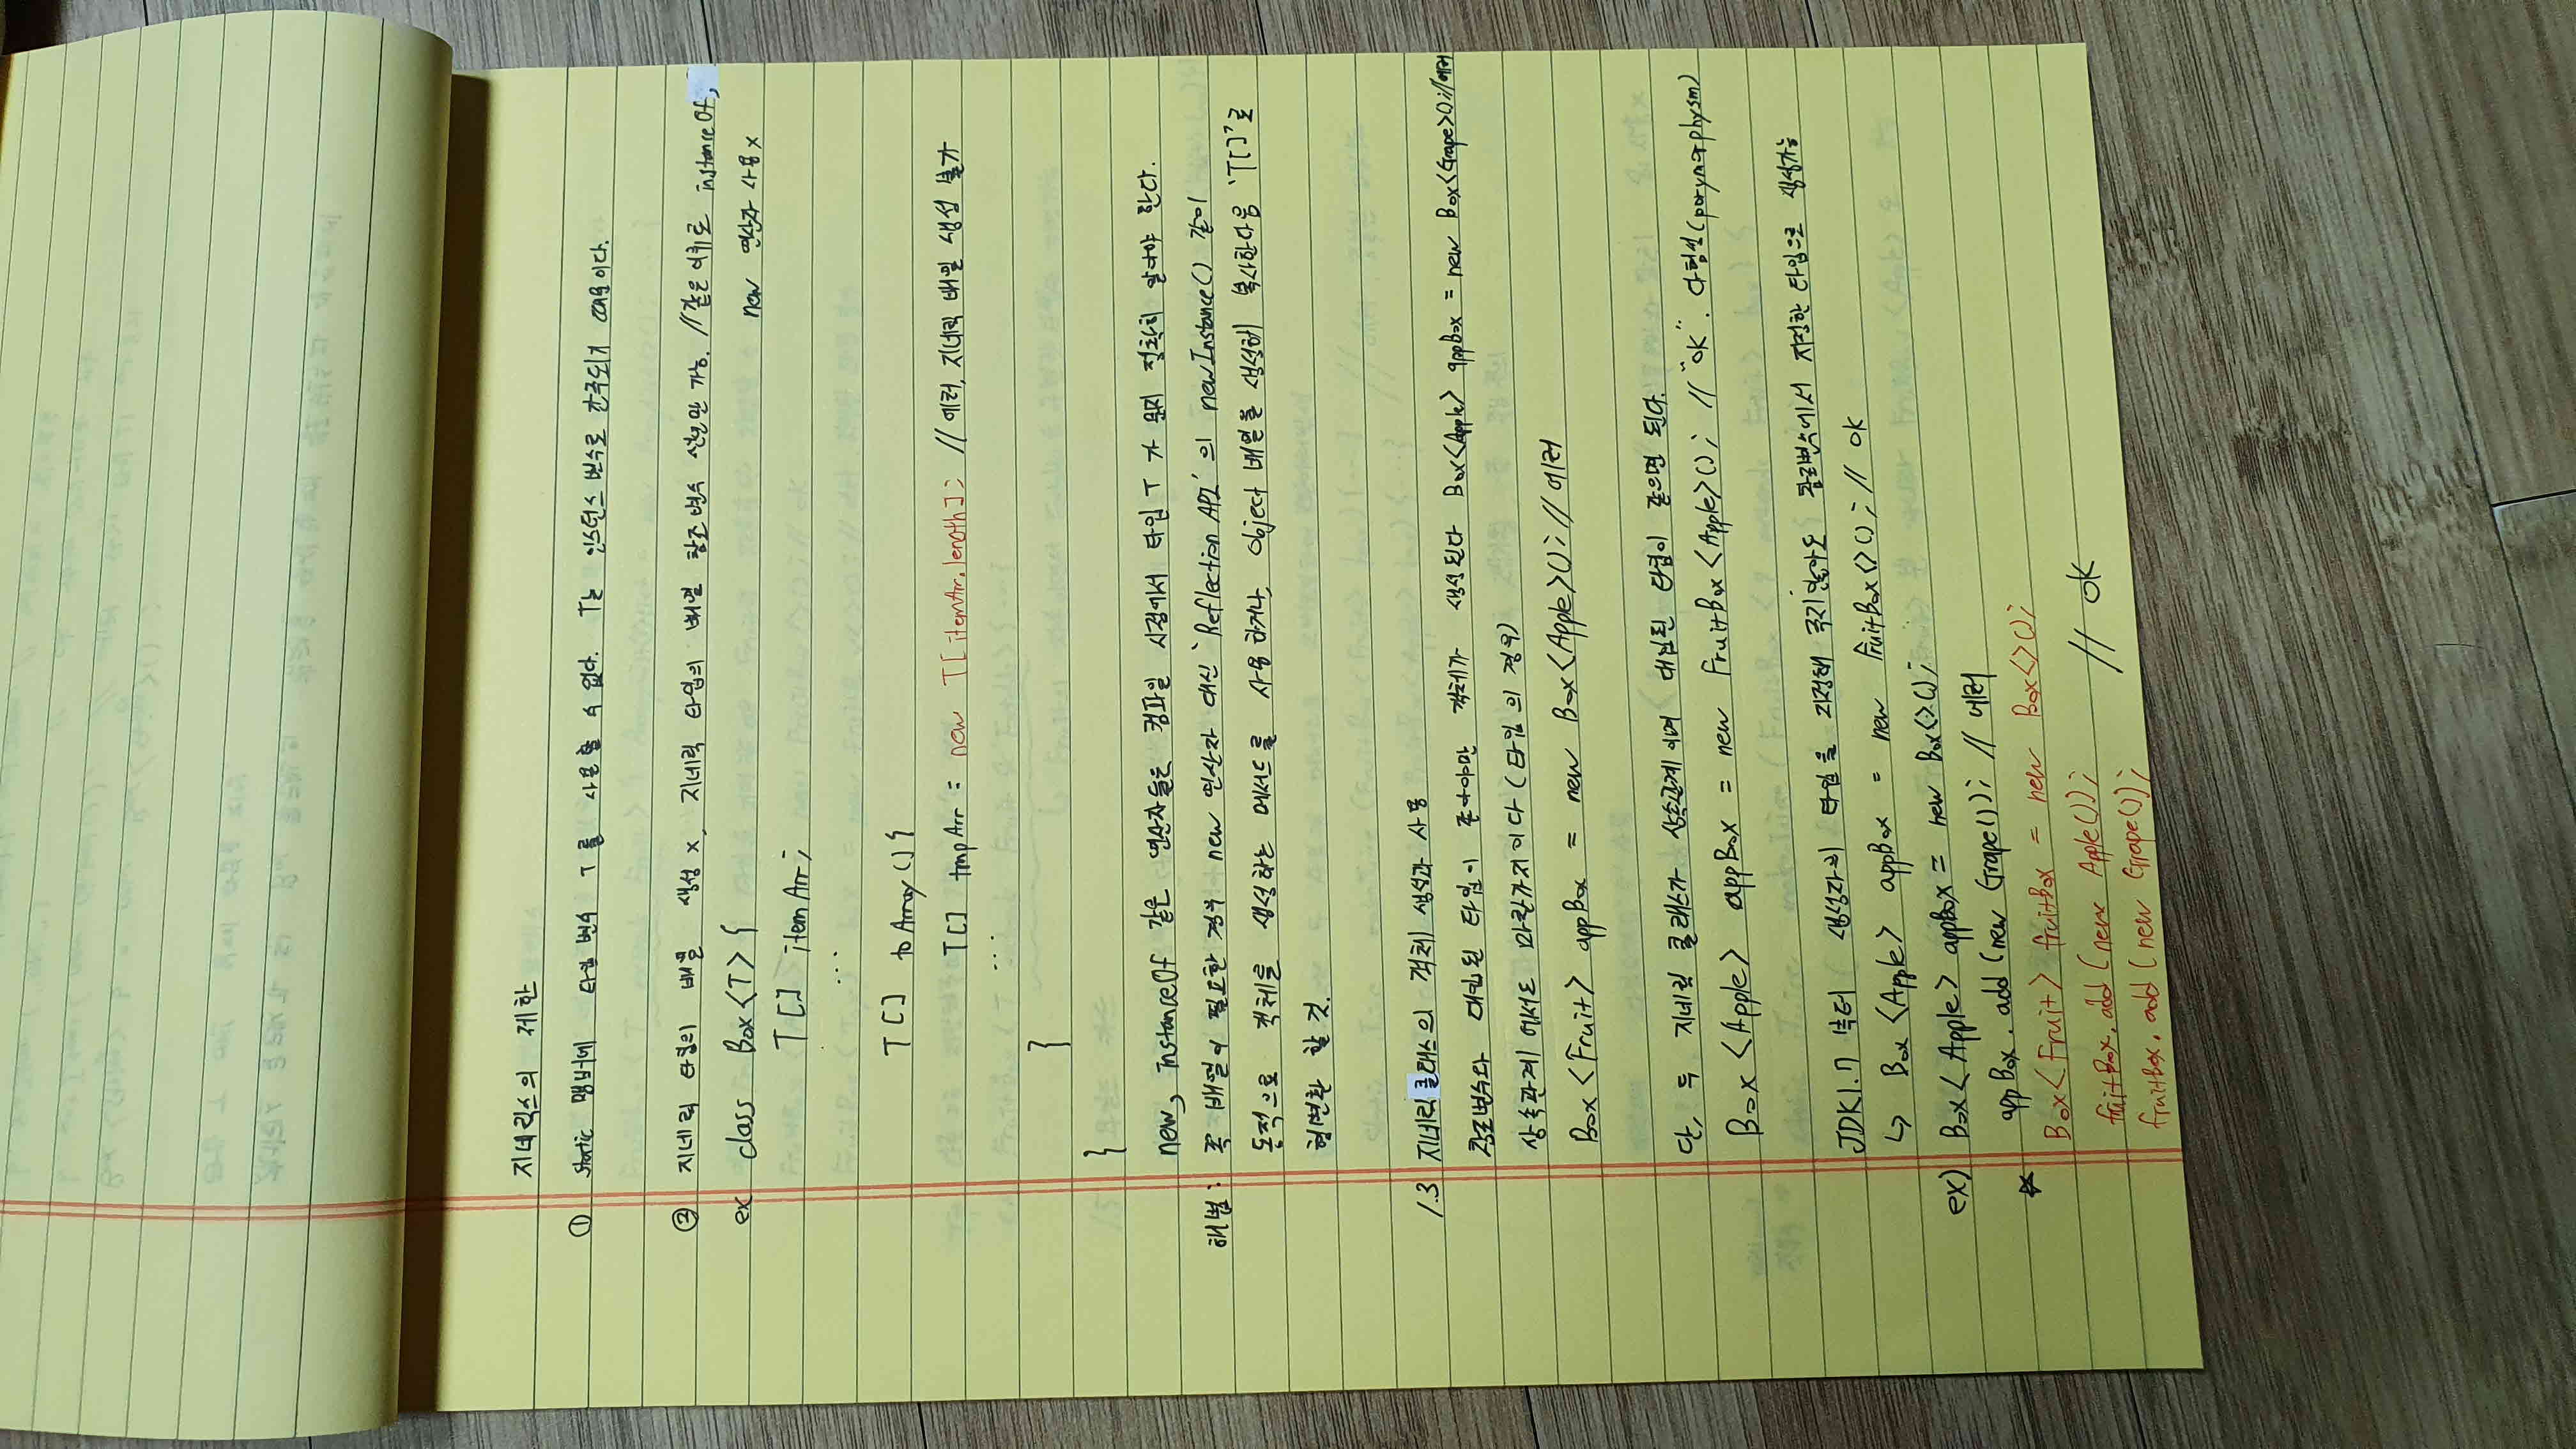 지네릭스의 제한
① static 멤버에 타입 변수 T를 사용할 수 없다. T는 인스턴스 변수로 간주되기 때문이다.
② 지네릭 타입의 배열 생성 x, 지네릭 타입의 배열 참조변수 선언만 가능. //같은 이유로 instanceOf,
new 연산자 사용 x
ex) class Box<T> {
T[] itemArr;
...
T[] toArray() {
T[] tmpArr = new T[itemArr.length]; // 에러, 지네릭 배열 생성 불가
...
}
}
new, instanceOf 같은 연산자들은 컴파일 시점에서 타입 T가 뭔지 정확히 알아야 한다.
해법: 꼭 배열이 필요한 경우 new 연산자 대신 'Reflection API'의 newInstance() 같이
동적으로 객체를 생성하는 메서드를 사용하거나, Object 배열을 생성해 복사한다음 'T[]'로
형변환 할 것.
1.3 지네릭 클래스의 객체 생성과 사용
참조변수와 대입된 타입이 같아야만 객체가 생성된다 Box<Apple> appBox = new Box<Grape>(); //에러
상속관계에서도 마찬가지이다 (타입의 경우)
Box<Fruit> appBox = new Box<Apple>(); // 에러
단, 두 지네릭 클래스가 상속관계이며 대입된 타입이 같으면 된다.
Box<Apple> appBox = new FruitBox<Apple>(); // "OK". 다형성(porymorphysm)
JDK1.7 부터 생성자의 타입을 지정해 주지않아도 참조변수에서 지정한 타입으로 생성가능
↳ Box<Apple> appBox = new FruitBox<>(); // OK
ex) Box<Apple> appBox = new Box<>();
appBox.add(new Grape()); // 에러
☆ Box<Fruit> fruitBox = new Box<>();
fruitBox.add(new Apple()); // OK
fruitBox.add(new Grape());